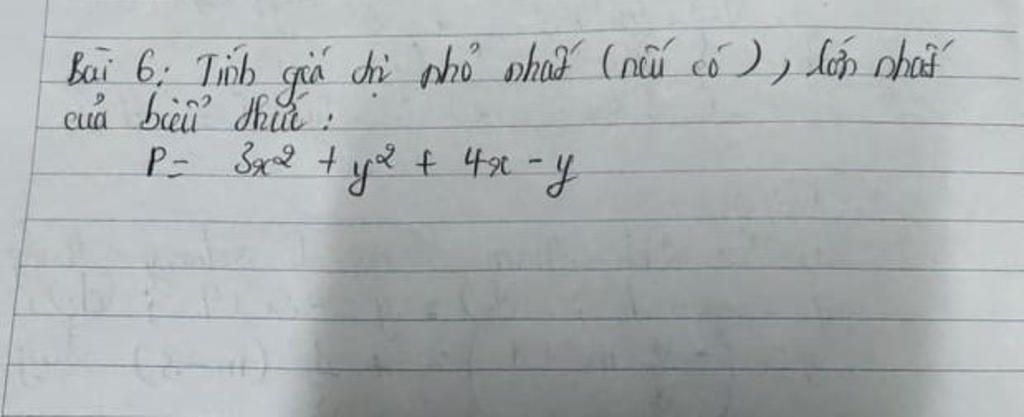 Bài 6: Tính giá trị nhỏ nhất (nếu có), lớn nhất
của biểu thức:
P = 3x² + y² + 4x - y